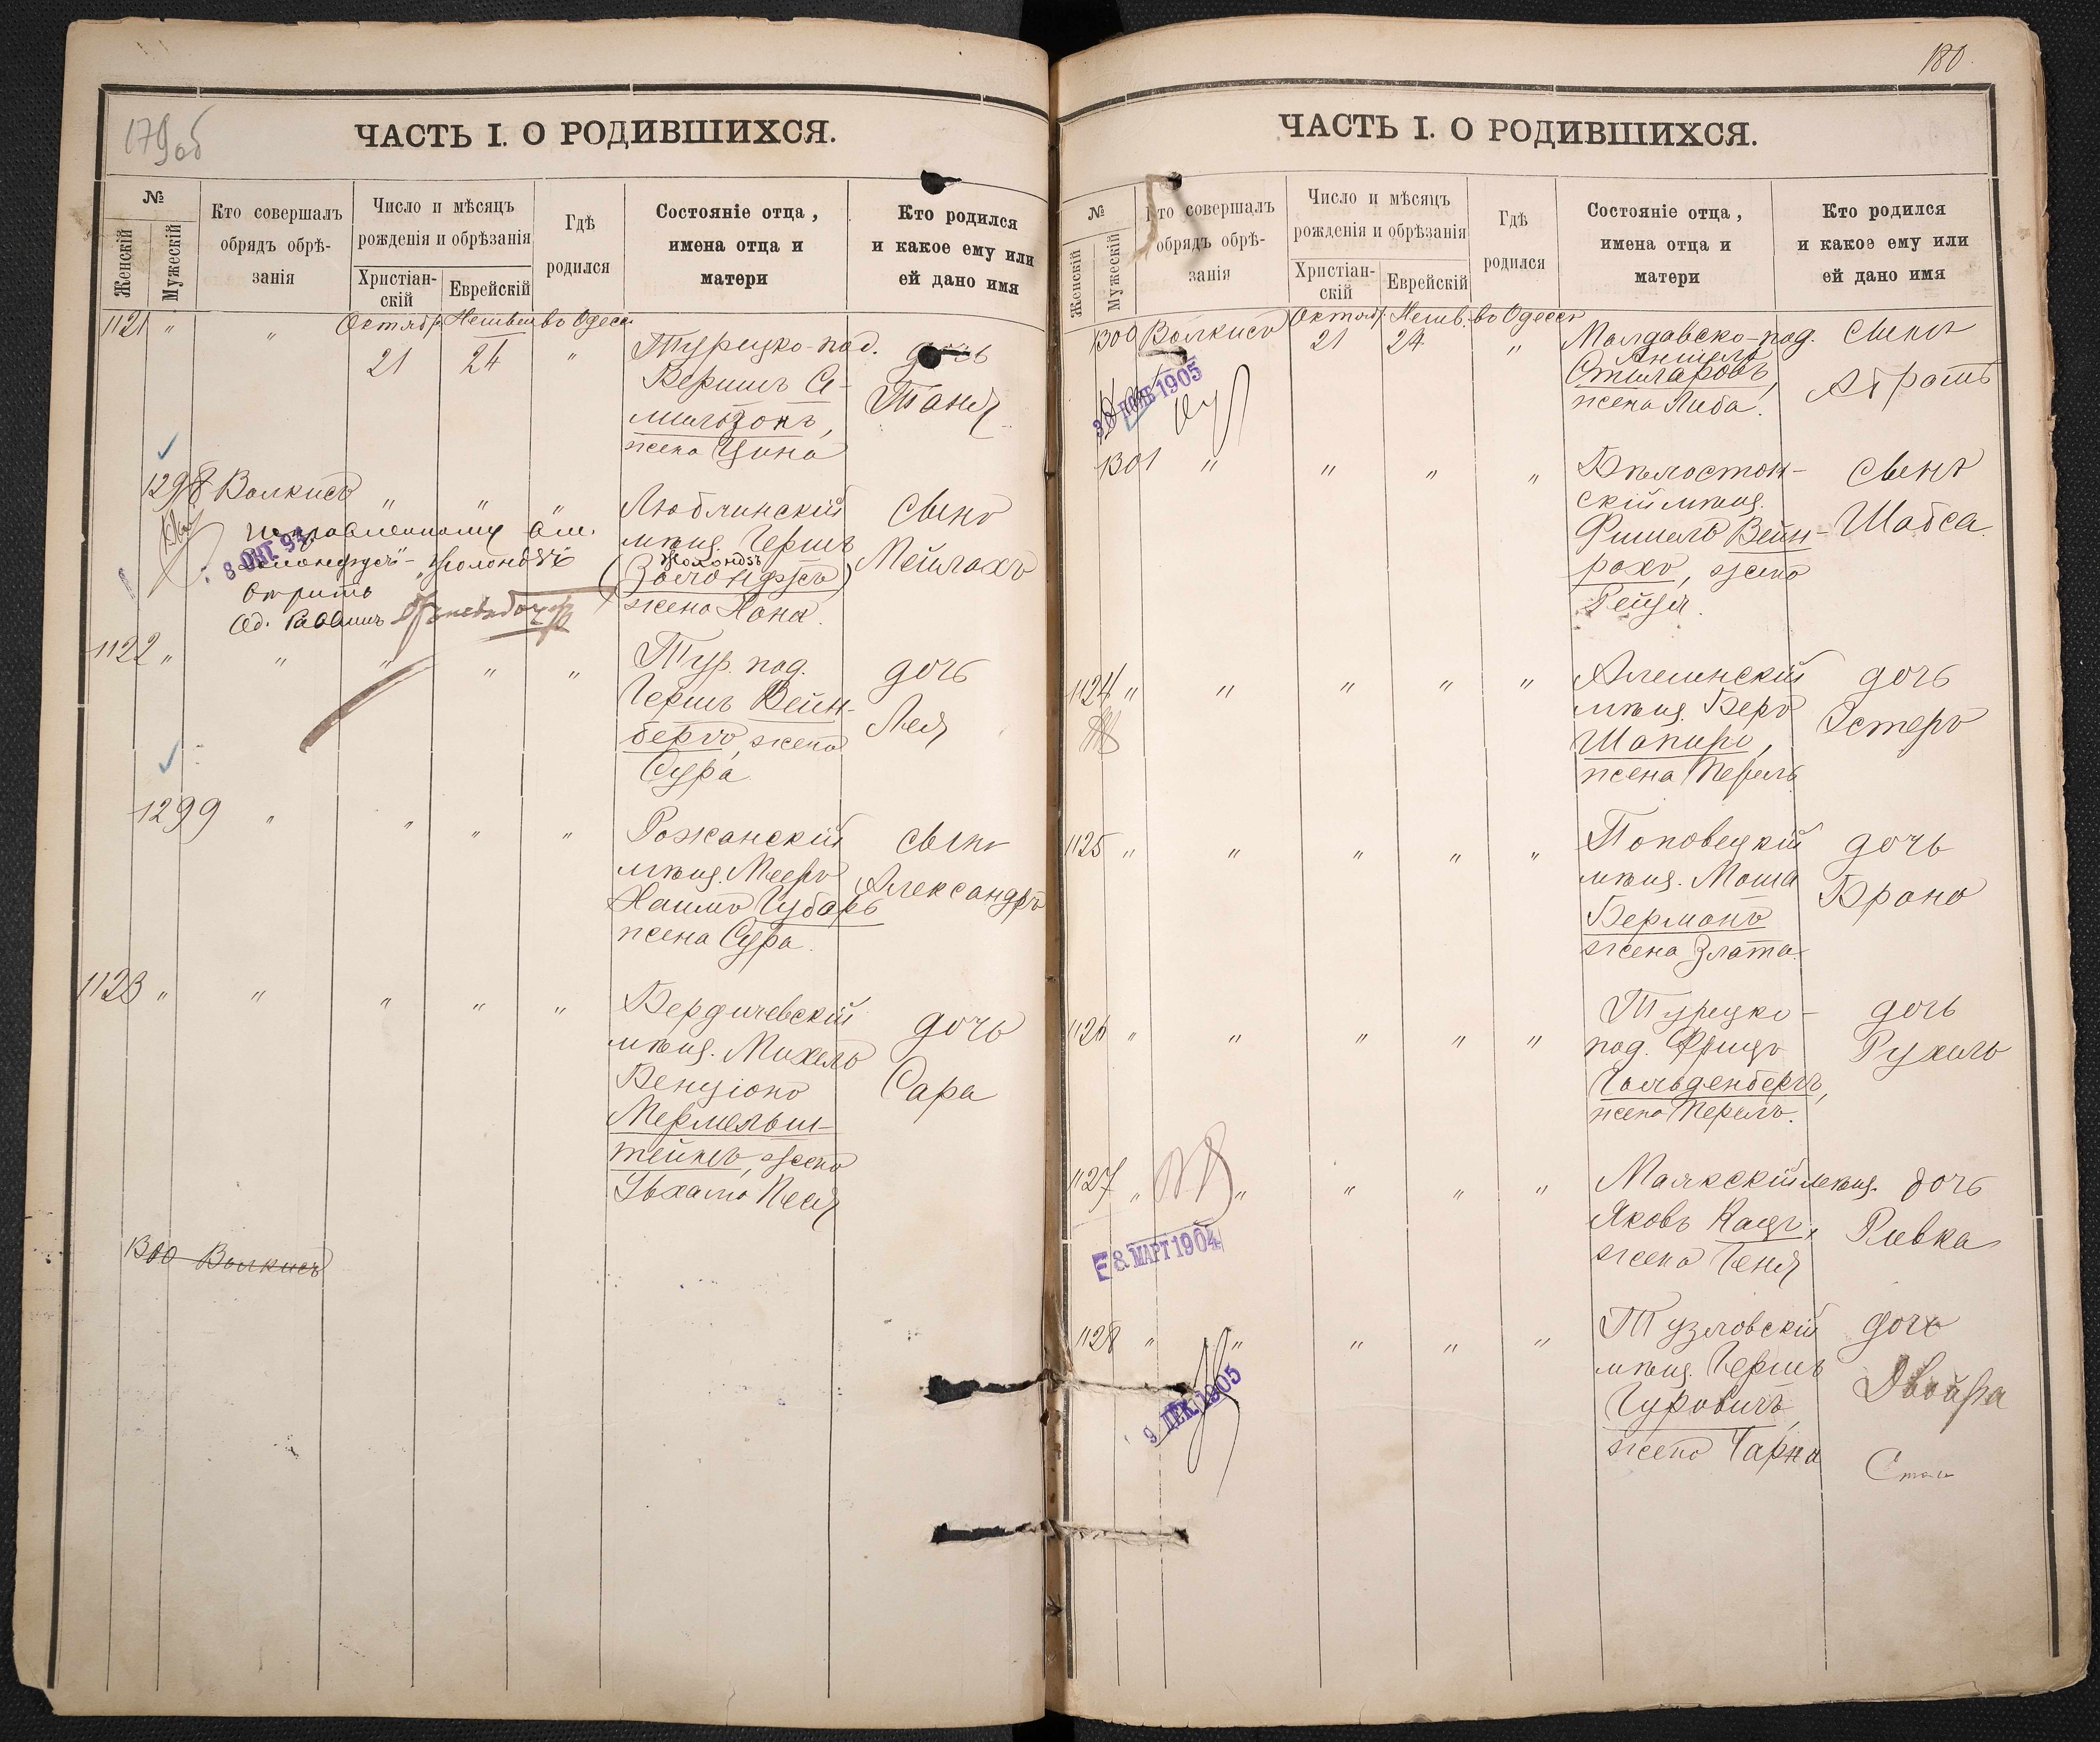 179об
ЧАСТЬ I. О РОДИВШИХСЯ.
№
Женскій
Мужескій
Кто совершалъ
обрядъ обрѣ-
занія
Число и мѣсяцъ
рожденія и обрѣзанія
Христіан-
скій
Еврейскій
Гдѣ
родился
Состояніе отца,
имена отца и
матери
Кто родился
и какое ему или
ей дано имя
1121 " " Октябр. Хешвен во Одесс.
21 24 " Турецко-под. дочь
Бериш
мильзонъ, Таня
жена Цина
1298 Волкисъ " " " Люблинскій сынъ
мѣщ. Гершъ Мейлахъ
8 ОКТ 93
жена Хана.
Од. Раввинъ
1122 " " " " " Тур. под. дочь
Гершъ Вейн- Лея
бергъ, жена
Сура
1299 " " " " Рожанскій сынъ
мѣщ. Мееръ Александръ
Наимъ Губарь
жена Сура.
1123 " " " " " Бердичевскій дочь
мѣщ. Михель Сара
Бенціонъ
Мермельш-
тейнъ, жена
Песя
1300 Волкисъ
180
ЧАСТЬ I. О РОДИВШИХСЯ.
№
Женскій
Мужескій
Кто совершалъ
обрядъ обрѣ-
занія
Число и мѣсяцъ
рожденія и обрѣзанія
Христіан-
скій
Еврейскій
Гдѣ
родился
Состояніе отца,
имена отца и
матери
Кто родился
и какое ему или
ей дано имя
1300 Волкисъ Октяб. Хешв. во Одессѣ
21 24 " Молдавско-под. сынъ
Аншель
Столяровъ, Абрамъ
жена Либа.
30 НОЯБ 1905
1301 " " " " Бѣлосток- сынъ
скій мѣщ. Шабса
Фишель Вейн-
рохъ, жена
Рейзя.
1124 " " " " " дочь
мѣщ. Беръ Эстеръ
Шапиро,
жена Перель
1125 " " " " " дочь
мѣщ. Мошъ Брана
Берманъ
жена Злата.
1126 " " " " " Турецко- дочь
под. Фрицъ Рухель
Гольденбергъ,
жена Перель.
1127 " " " " " Маякскій мѣщ. дочь
Яковъ Кацъ, Ривка
жена Геня
8 МАРТ 1904
1128 " " " " " Тузловскій дочь
мѣщ. Гершъ Двойра
Гуровичъ,
жена Чарна
9 ДЕК 1905